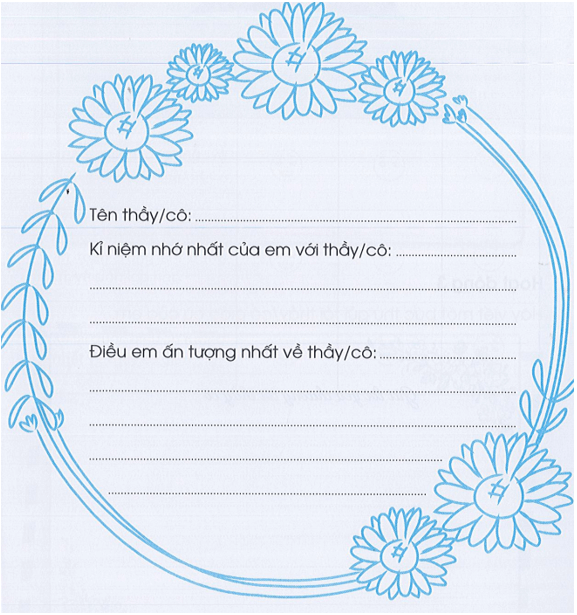 Tên thầy/cô:
Kỉ niệm nhớ nhất của em với thầy/cô:
Điều em ấn tượng nhất về thầy/cô: